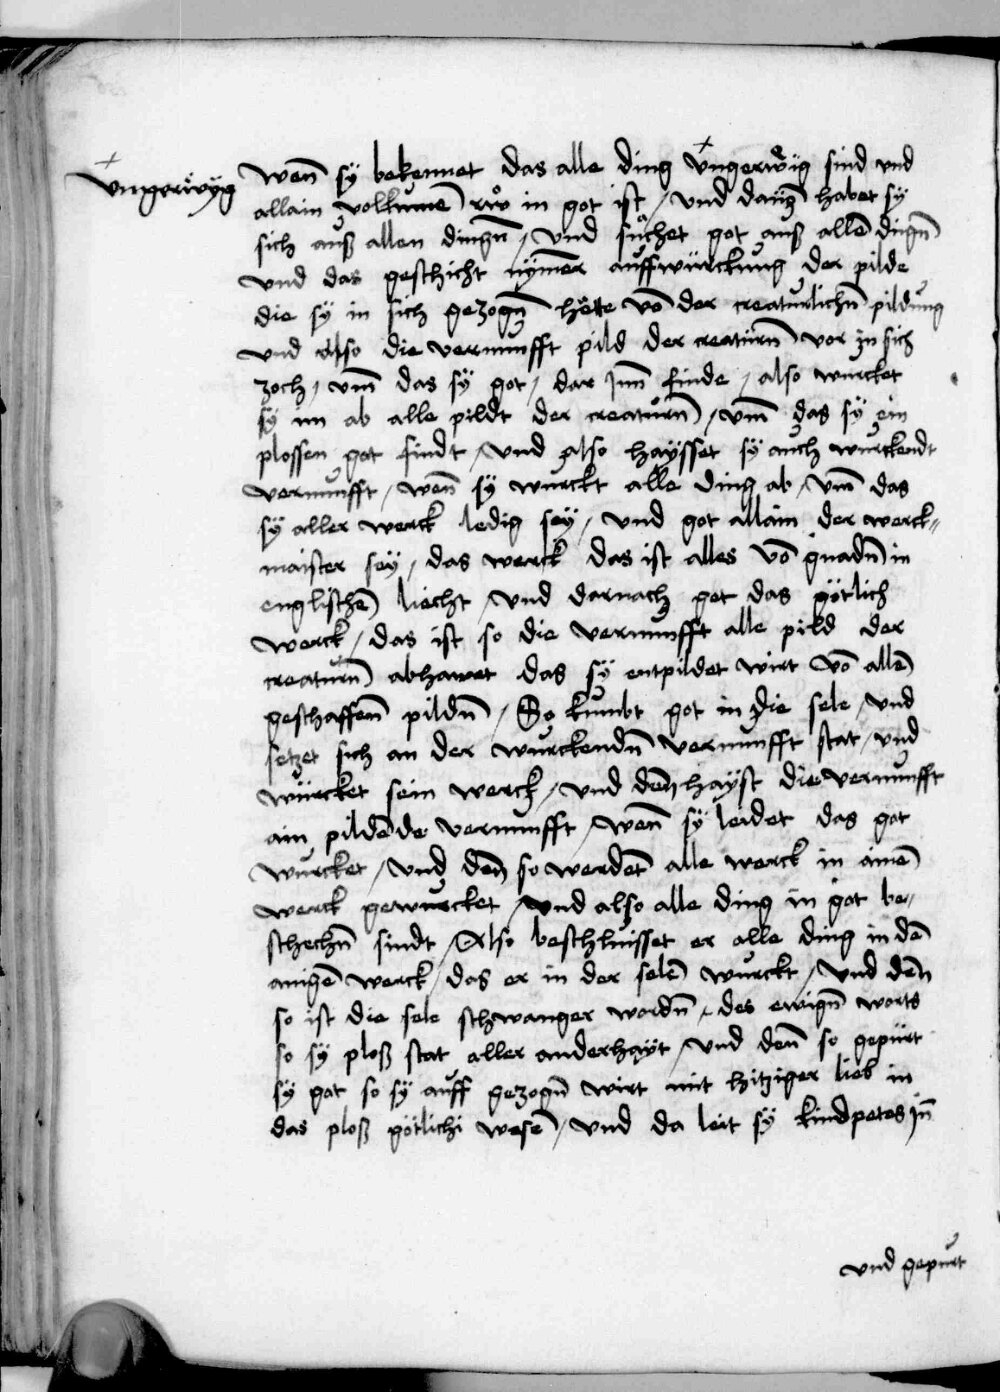 vngerüyg
wen̄ sy bekennet das alle ding vngerwig sind vnd
allain volkumē rwͦ in got ist / vnd daū habet sy
sich auß allen dingn̄ / vnd sůchet got auß allē dingn̄
vnd das geschicht nymēr auffwürckung der pilde
die sy in sich gezogn̄ hette vō der creaturlichn̄ pildung
vnd Also die vernunfft pild der creaturn̄ vor in sich
zoch / vm̄ das sy got / dar Jnn̄ finde / also wurcket
sy im ab alle pildt der creaturn̄ / vm̄ das sy ein
plossen got findt / vnd also haysset sy auch wurckendt
vernunfft / wen̄ sy wurckt alle ding ab / vm̄ das
sy aller werck ledig sey / vnd got allain der werck=
maister sey / das werck das ist alles vō gnadn̄ in
englischē liecht / vnd darnach get das götlich
werck / das ist so die vernunfft alle pild der
creaturn̄ abhawet das sy entpildet wirt vō allē
geschaffenn̄ pildn̄ / So kumbt got in die sele / vnd
setzet sich an der wurckendn̄ vernunfft stat / vnd
würcket sein werck / vnd den̄ hayst die vernunfft
ain pildēde vernunfft / wen̄ sy leidet das got
wurcket / vnd den̄ so werdet alle werck in ainē
werck gewurcket / vnd also alle ding in got be=
schechn̄ sindt / Also beschluisset er alle ding in dē
ainigē werck / das er in der selē wurckt / vnd den̄
so ist die sele schwanger wordn̄ / des ewign̄ worts
so sy ploß stat aller anderhayt / vnd den̄ so gepürt
sy got so sy auff gezogn̄ wirt mit hitziger lieb in
das ploß götlichi wesē / vnd da leit sy kindpetes Jn̄
vnd gepurt